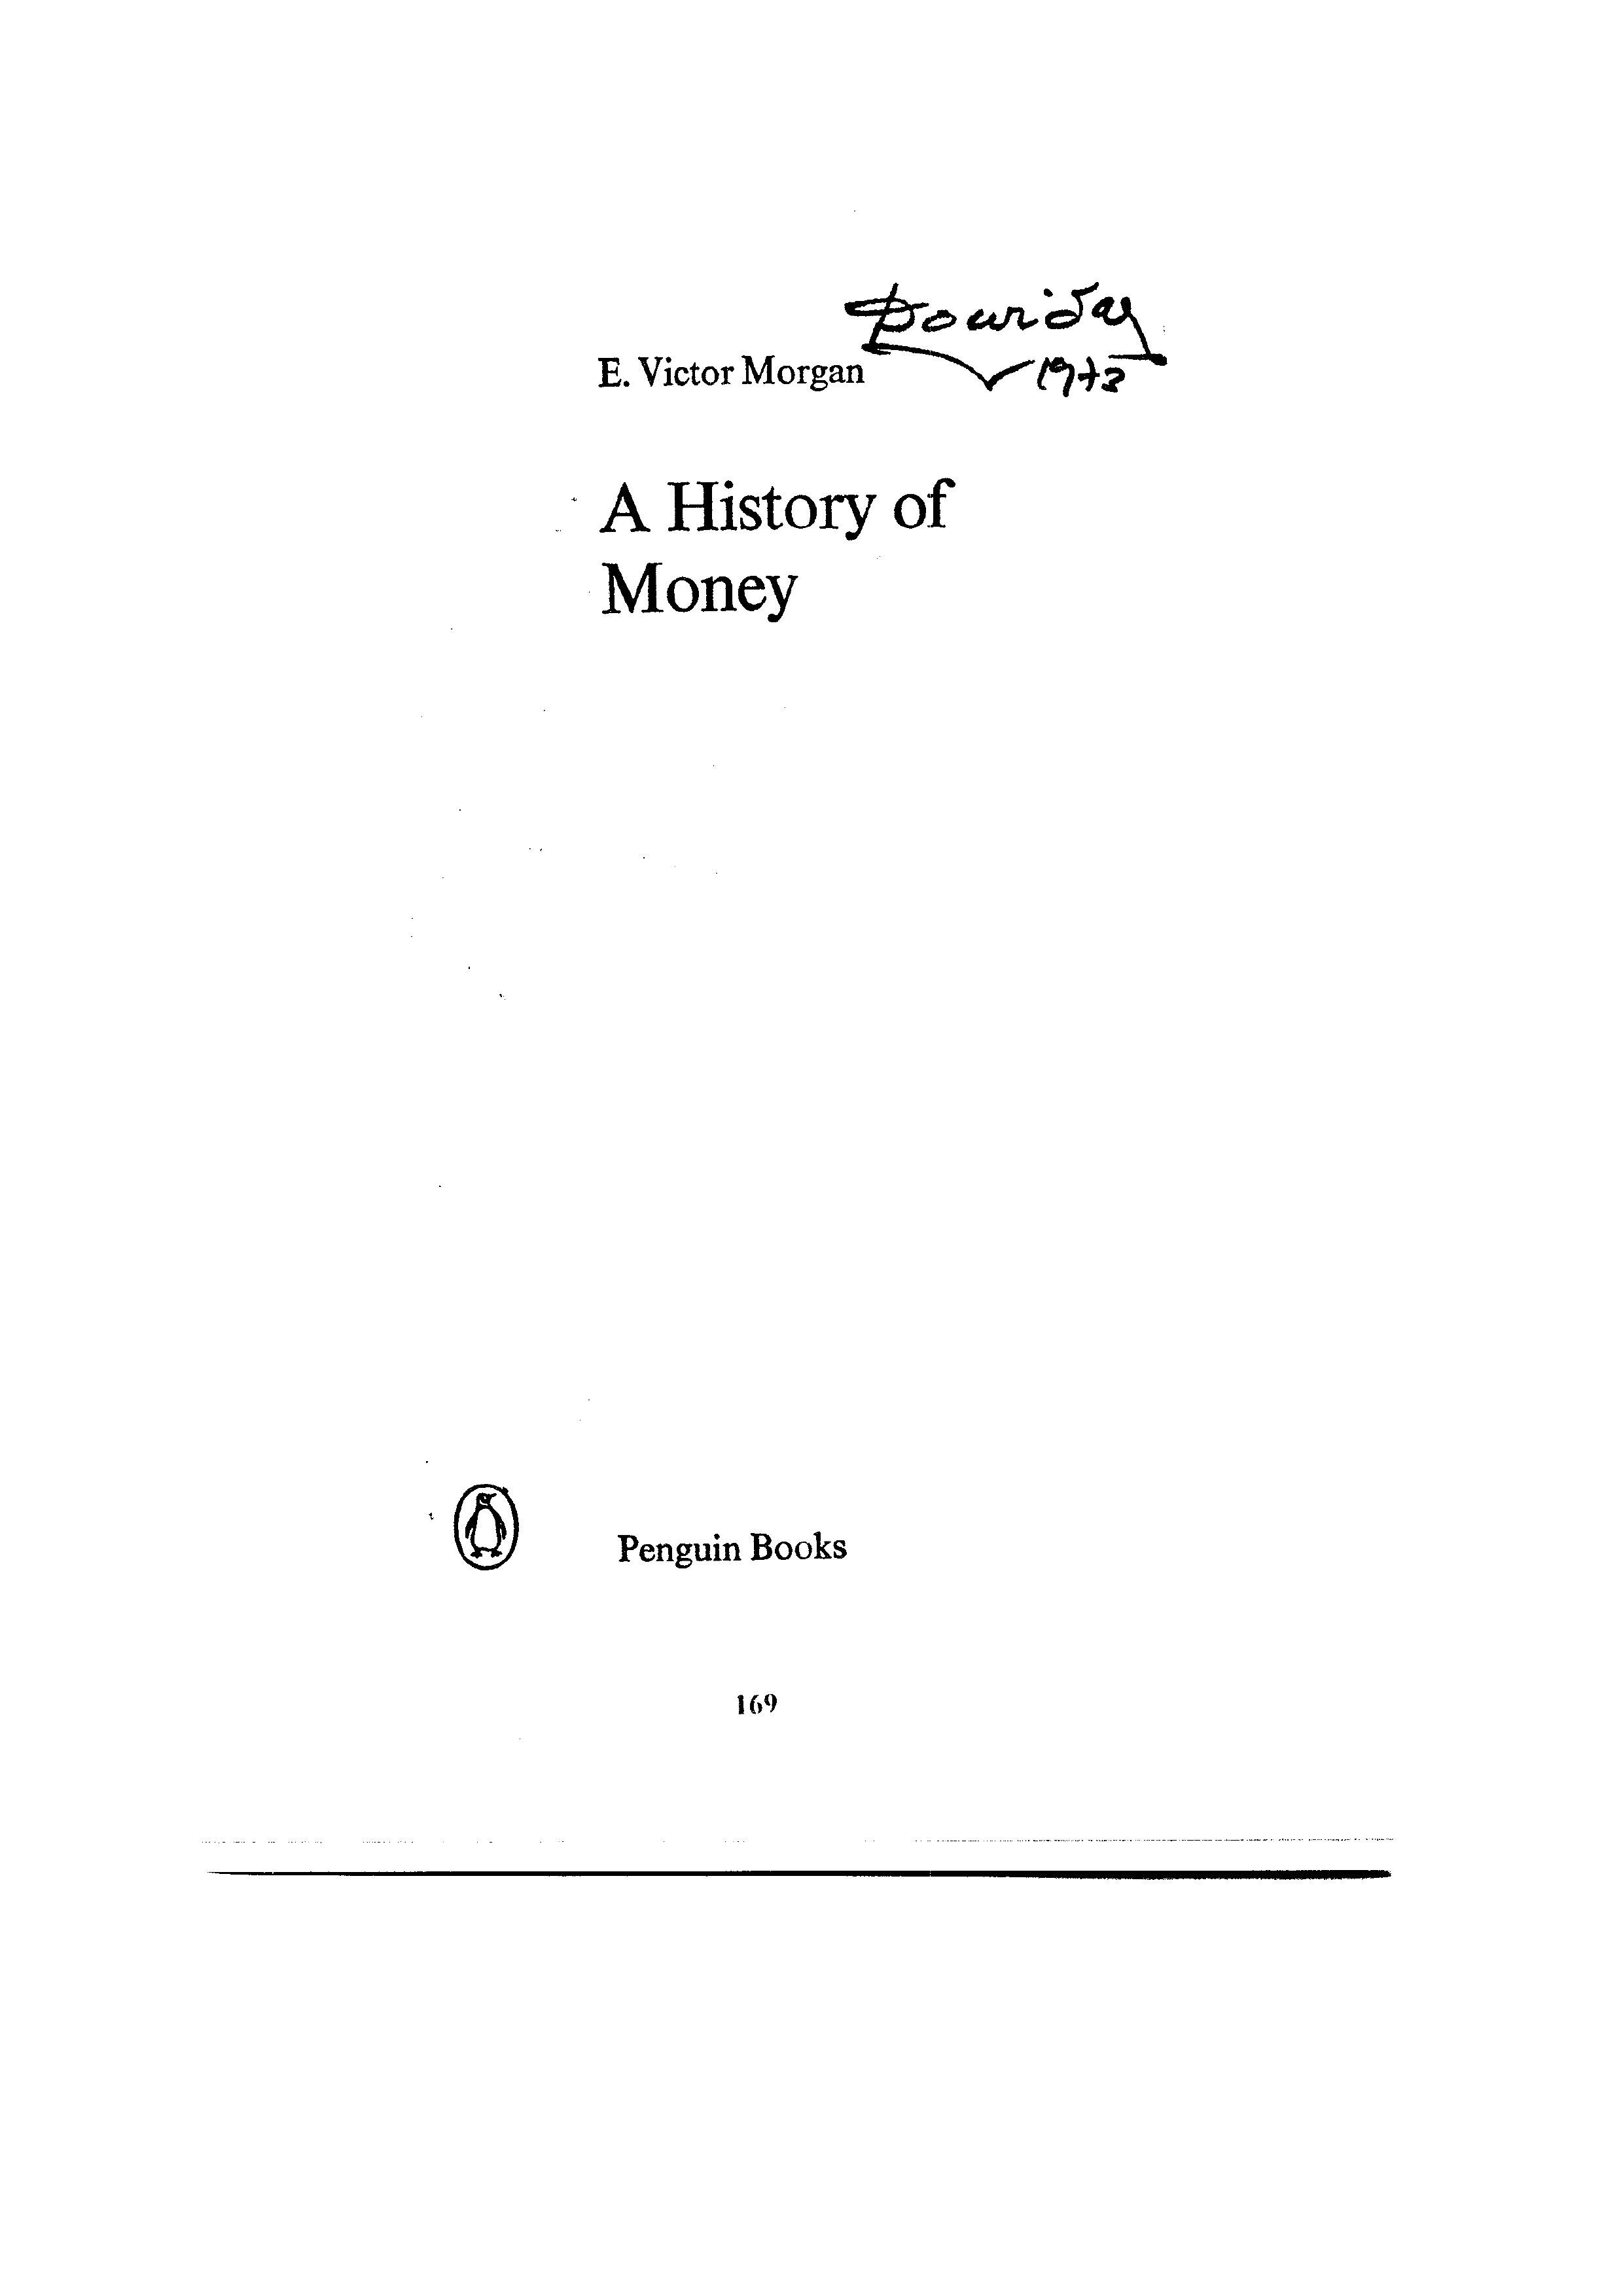 E. Victor Morgan
A History of
Money
Penguin Books
169